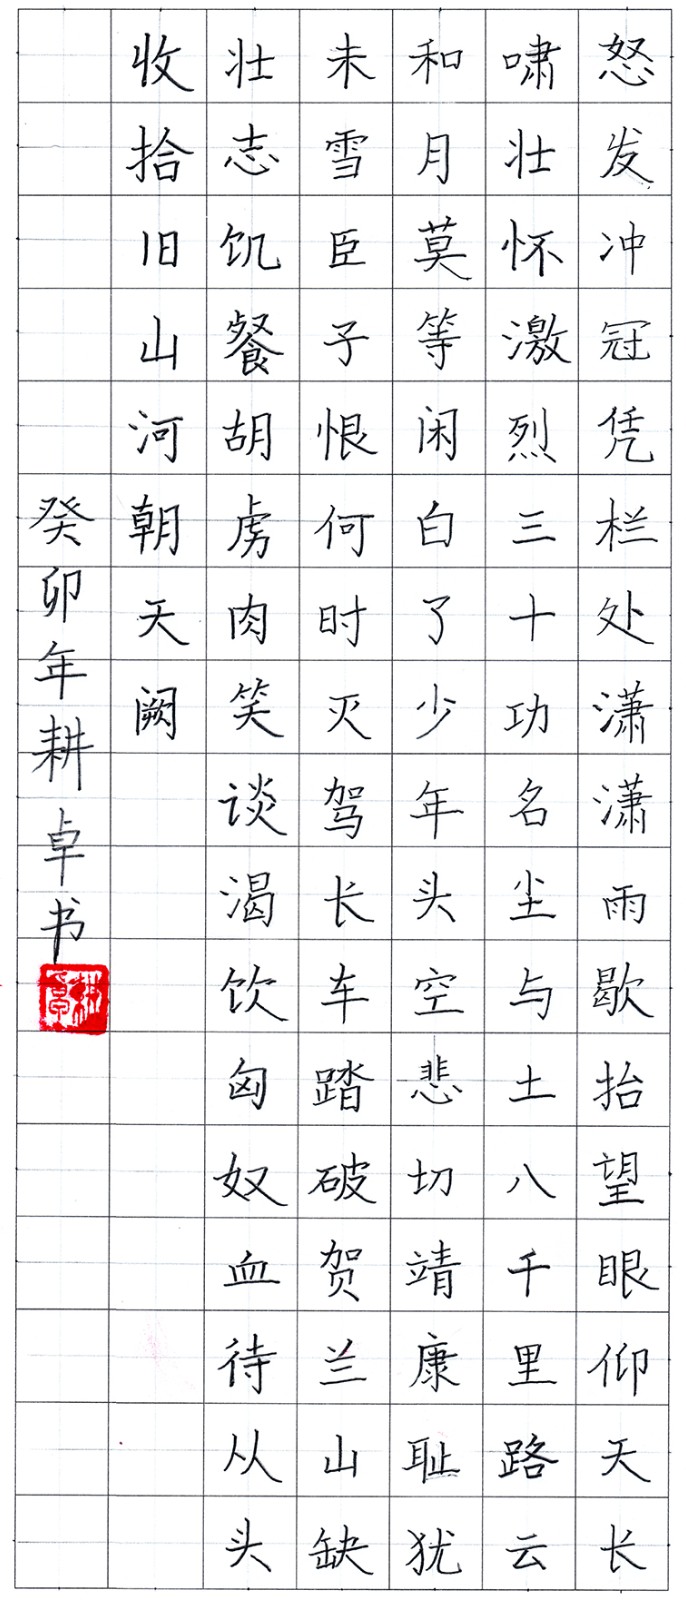 怒发冲冠凭栏处潇潇雨歇抬望眼仰天长
啸壮怀激烈三十功名尘与土八千里路云
和月莫等闲白了少年头空悲切靖康耻犹
未雪臣子恨何时灭驾长车踏破贺兰山缺
壮志饥餐胡虏肉笑谈渴饮匈奴血待从头
收拾旧山河朝天阙
癸卯年耕卓书